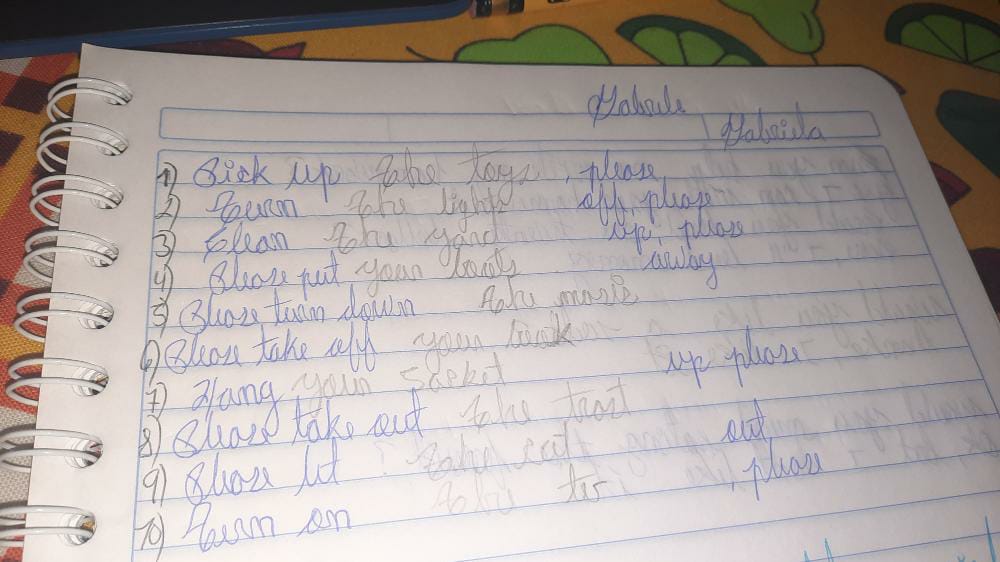 Gabriela
1) Pick up the toys, please
2) Turn the lights off, please
3) Clean the yard up, please
4) Please put your boots away
5) Please turn down the
6) Please take off your
7) Hang your Jacket up please
8) Please take out the
9) Please let the cat out
10) Turn on the , please